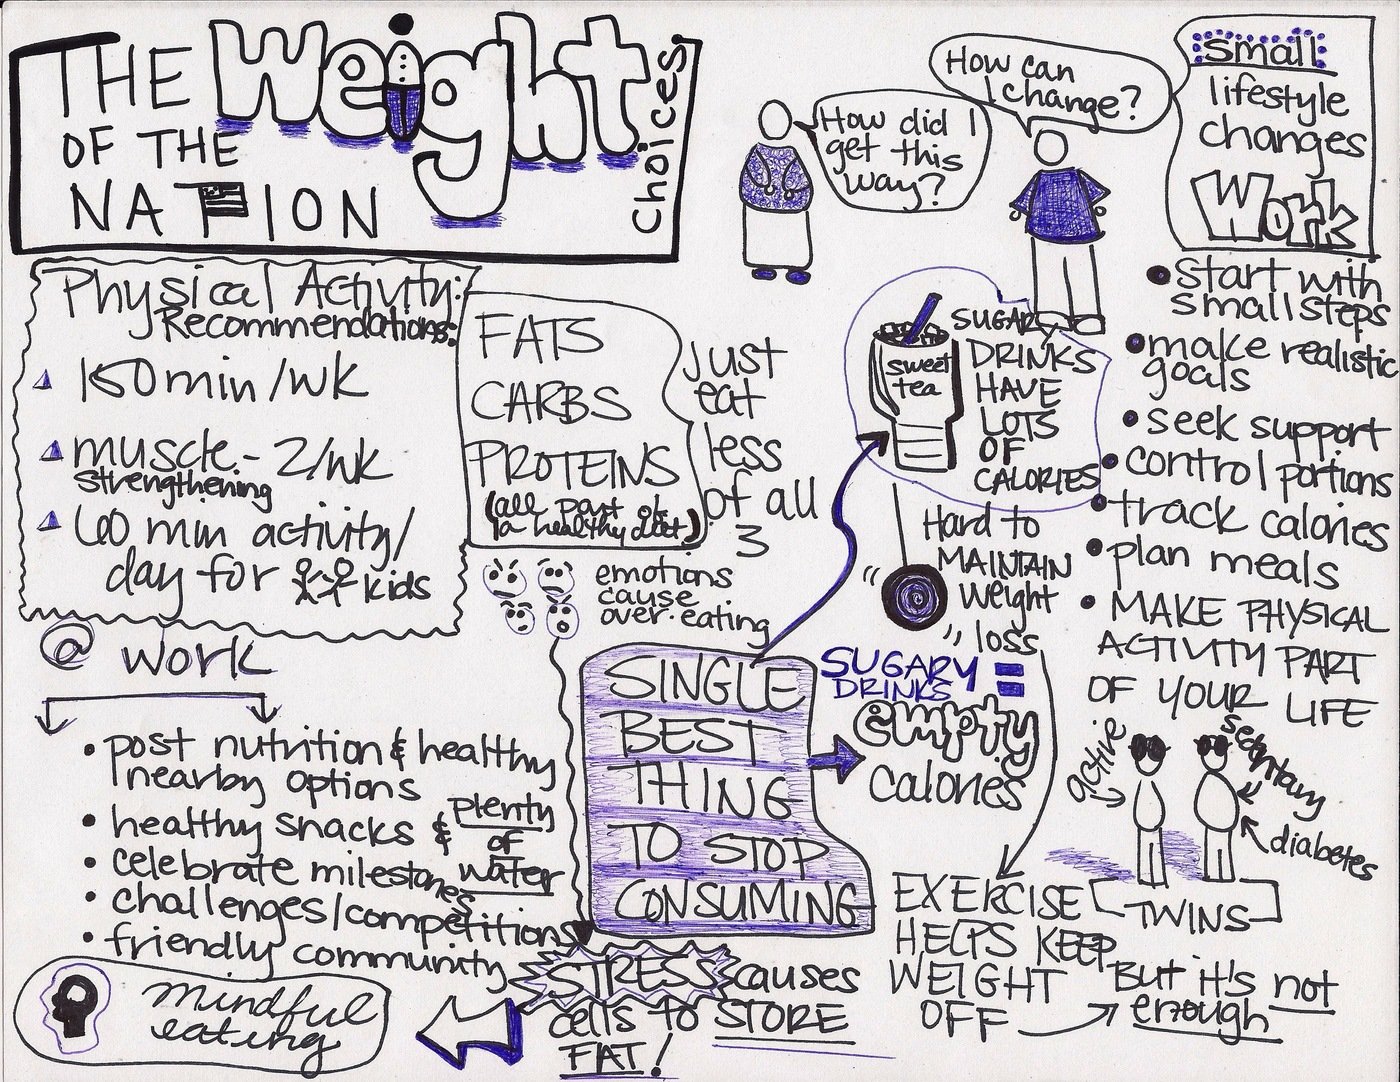 THE Weight
OF THE
NATION
Choices
How did I
get this
way?
How can
I change?
small
lifestyle
changes
Work
• start with
small steps
• make realistic
goals
• seek support
• control portions
• track calories
• plan meals
• MAKE PHYSICAL
ACTIVITY PART
OF YOUR LIFE
Physical Activity:
Recommendations:
150 min/wk
muscle - 2/wk
strengthening
60 min activity/
day for kids
FATS
CARBS
PROTEINS
(all part of
a healthy diet)
just
eat
less
of all
3
sweet
tea
SUGARY
DRINKS
HAVE
LOTS
OF
CALORIES
Hard to
MAINTAIN
weight
loss
emotions
cause
over-eating
SINGLE
BEST
THING
TO STOP
CONSUMING
SUGARY =
DRINKS
empty
calories
@ WORK
• post nutrition & healthy
nearby options
• healthy snacks & plenty
of
water
• celebrate milestones
• challenges/competitions
• friendly community
STRESS causes
cells to STORE
FAT!
mindful
eating
EXERCISE
HELPS KEEP
WEIGHT
OFF
But it's not
enough
active
sedentary
diabetes
TWINS